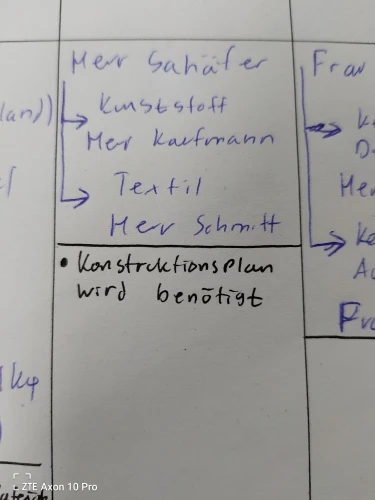 Herr Sahäfer
Kunststoff
Herr Kaufmann
Textil
Herr Schmitt
• Konstrktionsplan
wird benötigt
land)
Frau
1kg
ZTE Axon 10 Pro